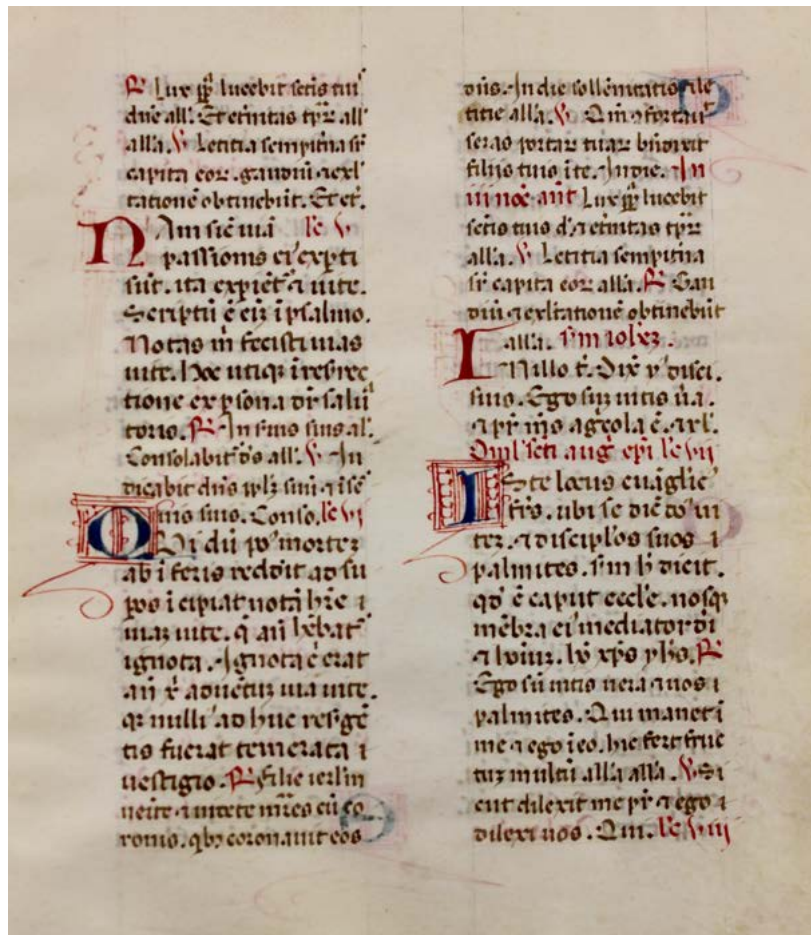 R Lux ppͥ lucebit scīs tui'
dn̄e all'. Et et̄nitas tp̄ꝝ all'
all'a. V Letitia sempit̄na sr̄
capita eoꝝ. gaudiū ⁊ exl'
tationē obtinebūt. Et et'.
Nam sic uia' le v
passionis ei' exp̄ti
sūt. ita expiēt' ⁊ uite.
Scriptū ē ei3 ī psalmo.
Notas m̄ fecisti uias
uite. Hec utiq3 ī resr̄rec
tione ex p̄sona dn̄i salū
toris. R In s̄uis suis al'.
Consolabit' d's all'. V In
dicabit dn̄s ppl'3 suū ⁊ ī s̄e
uis suis. Conso. le vi
Qui dū po' morte3
ab īferis reddit ad su
ꝑos īcipiat notā h̄re ī
uia3 uite. q̄ an̄ h̄ebat'
ignota. Ignota ē erat
an̄ x̄ aduētu3 uia uite.
q2 nulli' adhuc resr̄gē
tis fuerat temerata ī
uestigio. R Filie ierl'm
ueīte ⁊ uidete mr̄es cū co
ronis. qb3 coronauit eos
dn̄s. In die sollēnitatis ⁊ le
titie all'a. V Qm̄ ɔfortau'
seras portaꝝ tuaꝝ bn̄dixit
filiis tuis ī te. In die. In
iii noc̄. ant̄ Lux ppͥ lucebit
scīs tuis d'. ⁊ et̄nitas tp̄ꝝ
all'a. V Letitia sempit̄na
sr̄ capita eoꝝ all'a. R Gau
diū ⁊ exl'tationē obtinebūt
all'a. s'm ioh'e3.
In illo t̄. Dix̄ y' disci.
suis. Ego su3 uitis ūa.
⁊ pr̄ m̄s agͥcola ē. ⁊ rl'.
Oml' sc̄i aug' ep̄i le vii
Iste locus euāglic'
fr̄s. ubi se dic̄ do' ui
te3. ⁊ discipl'os suos ī
palmites. s'm h̄ dicit.
qd' ē caput eccl'e. nosq3
mēbra ei' mediator di
⁊ hoīu3. h̄o xp̄s yh̄s. R
Ego sū uitis uera ⁊ uos ī
palmites. Qui manet ī
me ⁊ ego ī eo. hic fert fruc
tu3 multū all'a all'a. V Si
cut dilexit me pr̄ ⁊ ego ī
dilexi uos. Qui. le viii